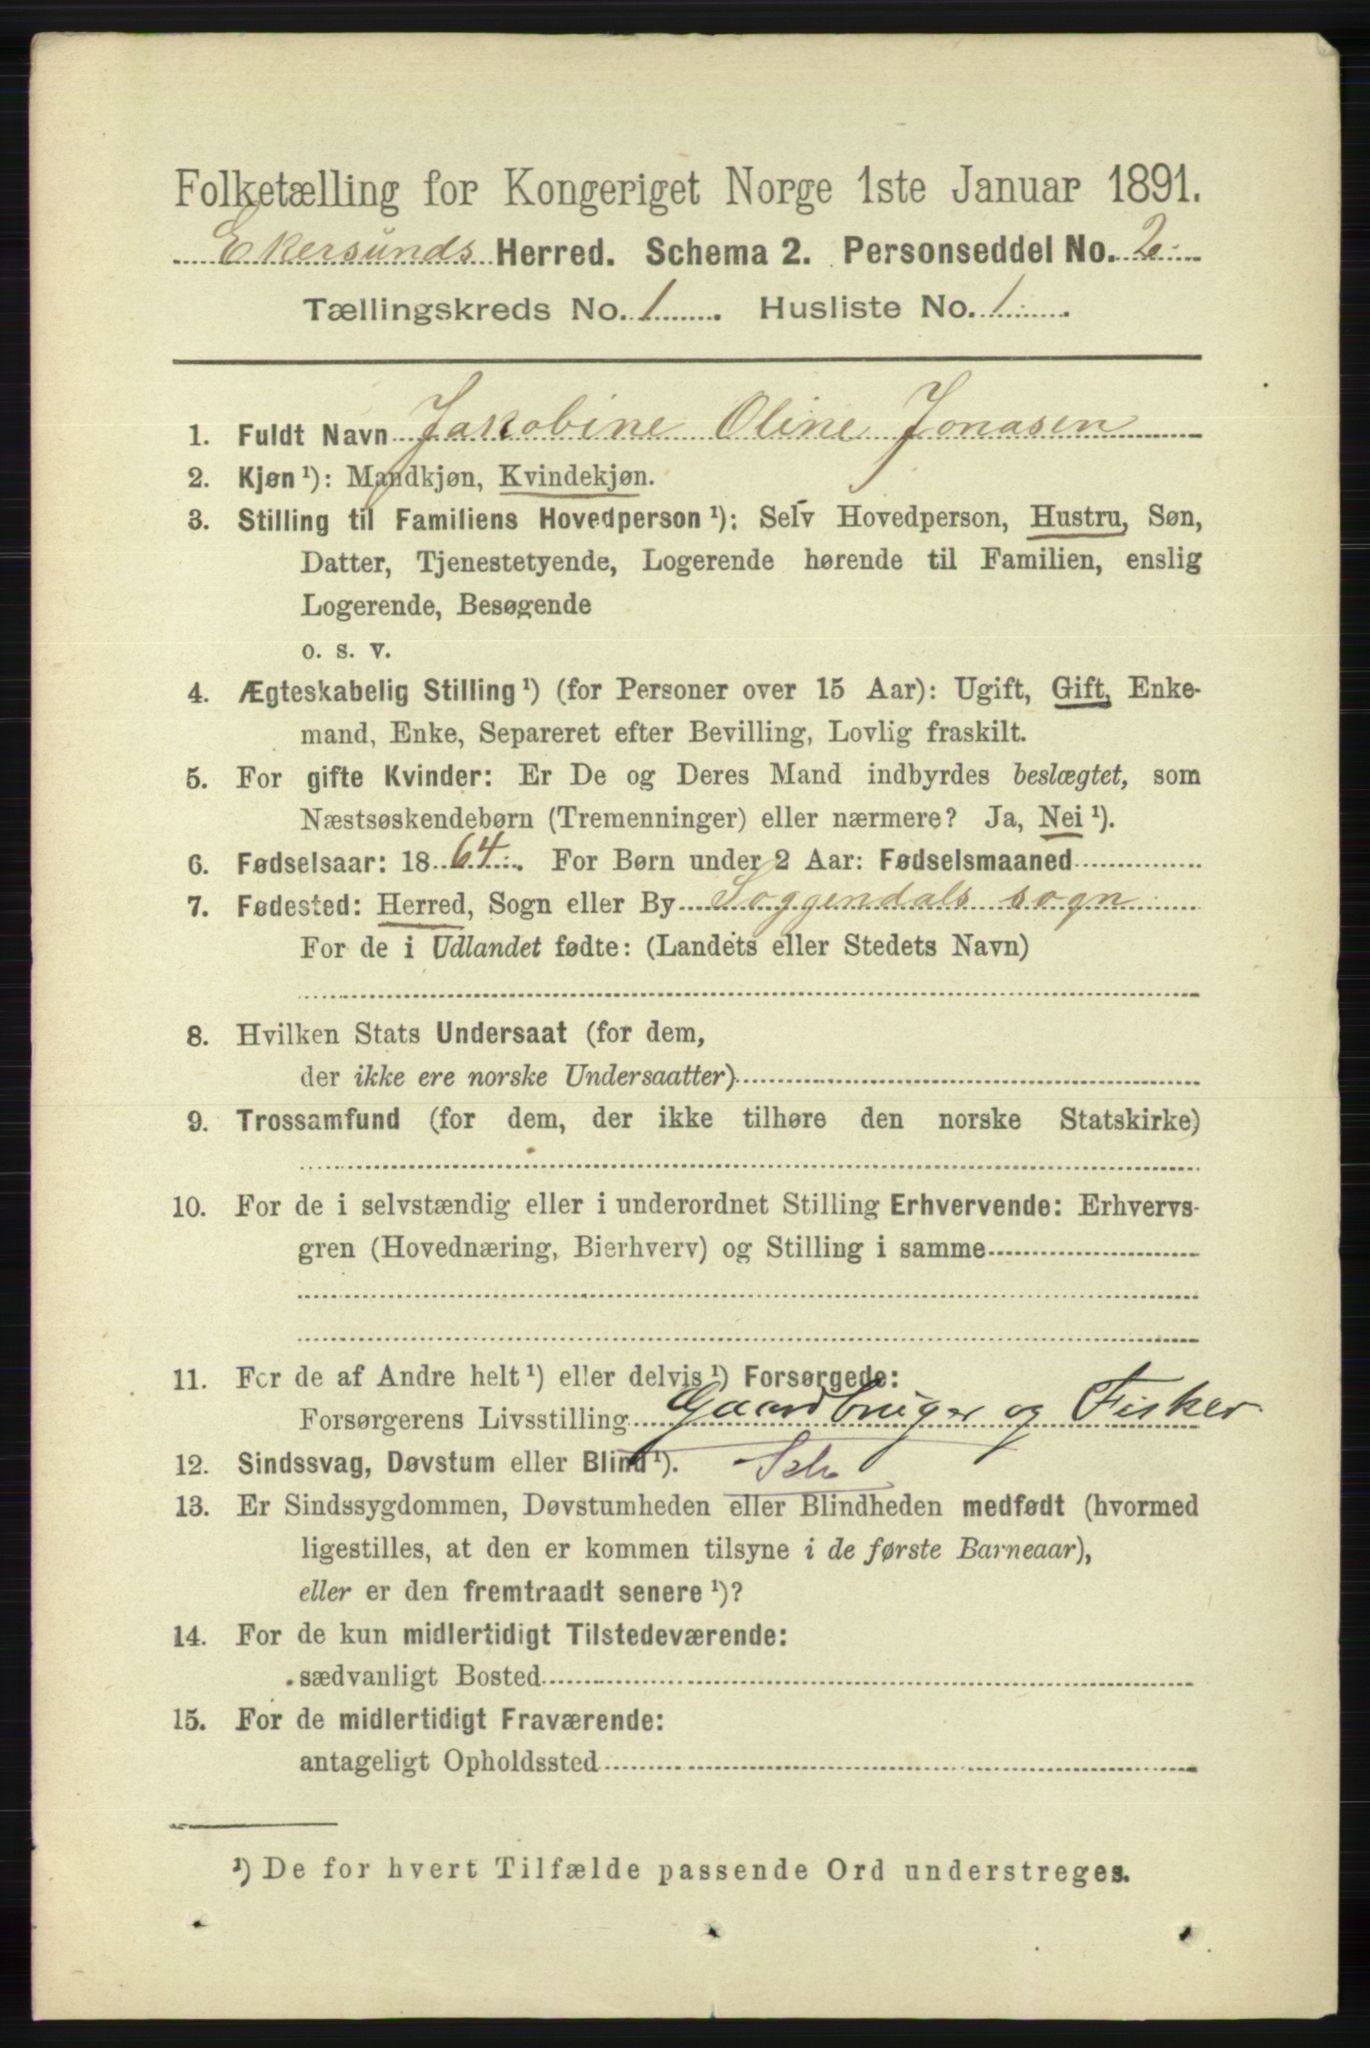 Folketælling for Kongeriget Norge 1ste Januar 1891.
Ekersunds Herred. Schema 2. Personseddel No. 2.
Tællingskreds No. 1. Husliste No. 1.
1. Fuldt Navn Jakobine Oline Jonasen
2. Kjøn ¹): Mandkjøn, Kvindekjøn.
3. Stilling til Familiens Hovedperson ¹): Selv Hovedperson, Hustru, Søn,
Datter, Tjenestetyende, Logerende hørende til Familien, enslig
Logerende, Besøgende
o. s. v.
4. Ægteskabelig Stilling ¹) (for Personer over 15 Aar): Ugift, Gift, Enke-
mand, Enke, Separeret efter Bevilling, Lovlig fraskilt.
5. For gifte Kvinder: Er De og Deres Mand indbyrdes beslægtet, som
Næstsøskendebørn (Tremenninger) eller nærmere? Ja, Nei ¹).
6. Fødselsaar: 1864. For Børn under 2 Aar: Fødselsmaaned
7. Fødested: Herred, Sogn eller By Soggendals sogn
For de i Udlandet fødte: (Landets eller Stedets Navn)
8. Hvilken Stats Undersaat (for dem,
der ikke ere norske Undersaatter)
9. Trossamfund (for dem, der ikke tilhøre den norske Statskirke)
10. For de i selvstændig eller i underordnet Stilling Erhvervende: Erhvervs-
gren (Hovednæring, Bierhverv) og Stilling i samme
11. For de af Andre helt ¹) eller delvis ¹) Forsørgede:
Forsørgerens Livsstilling Gaardbruger og Fisker
12. Sindssvag, Døvstum eller Blind ¹).
13. Er Sindssygdommen, Døvstumheden eller Blindheden medfødt (hvormed
ligestilles, at den er kommen tilsyne i de første Barneaar),
eller er den fremtraadt senere ¹)?
14. For de kun midlertidigt Tilstedeværende:
sædvanligt Bosted
15. For de midlertidigt Fraværende:
antageligt Opholdssted
¹) De for hvert Tilfælde passende Ord understreges.